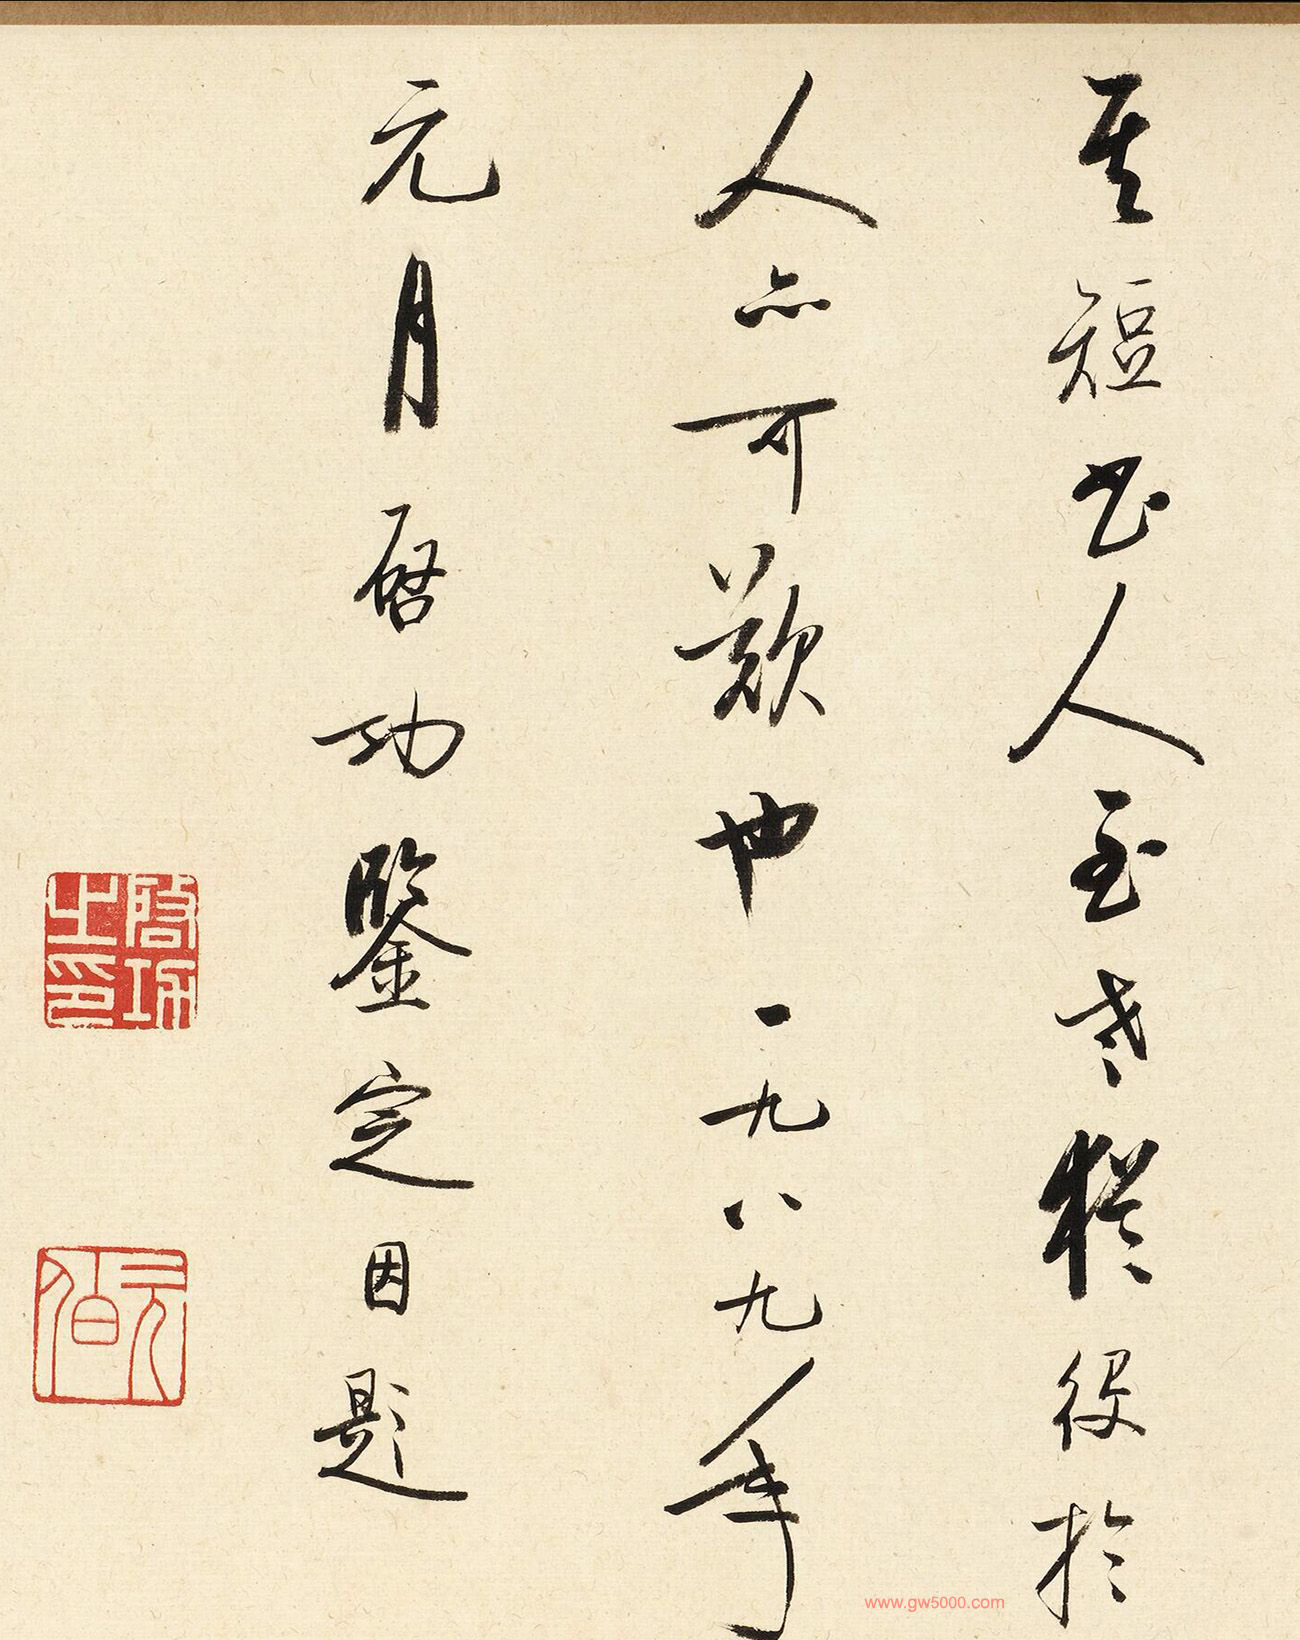 其短此人至老猶役於
人亦可歎也一九八九年
元月啓功鑒定因題
啓功之印
元伯
www.gw5000.com